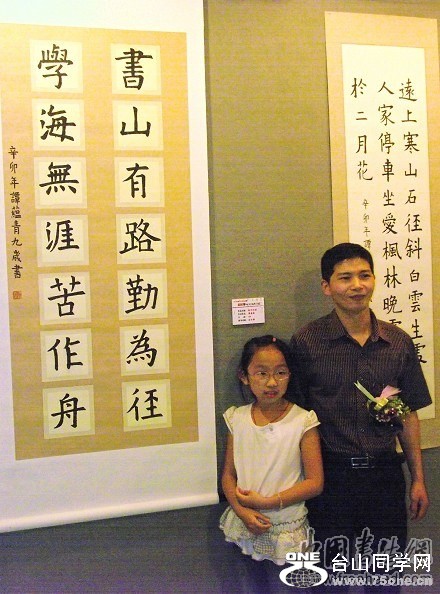 書山有路勤為徑
學海無涯苦作舟
辛卯年譚蘊青九歲書
遠上寒山石徑斜白雲生處
人家停車坐愛楓林晚霜
於二月花
辛卯年譚
中国书法网
ONE 台山同学网
www.75one.cn